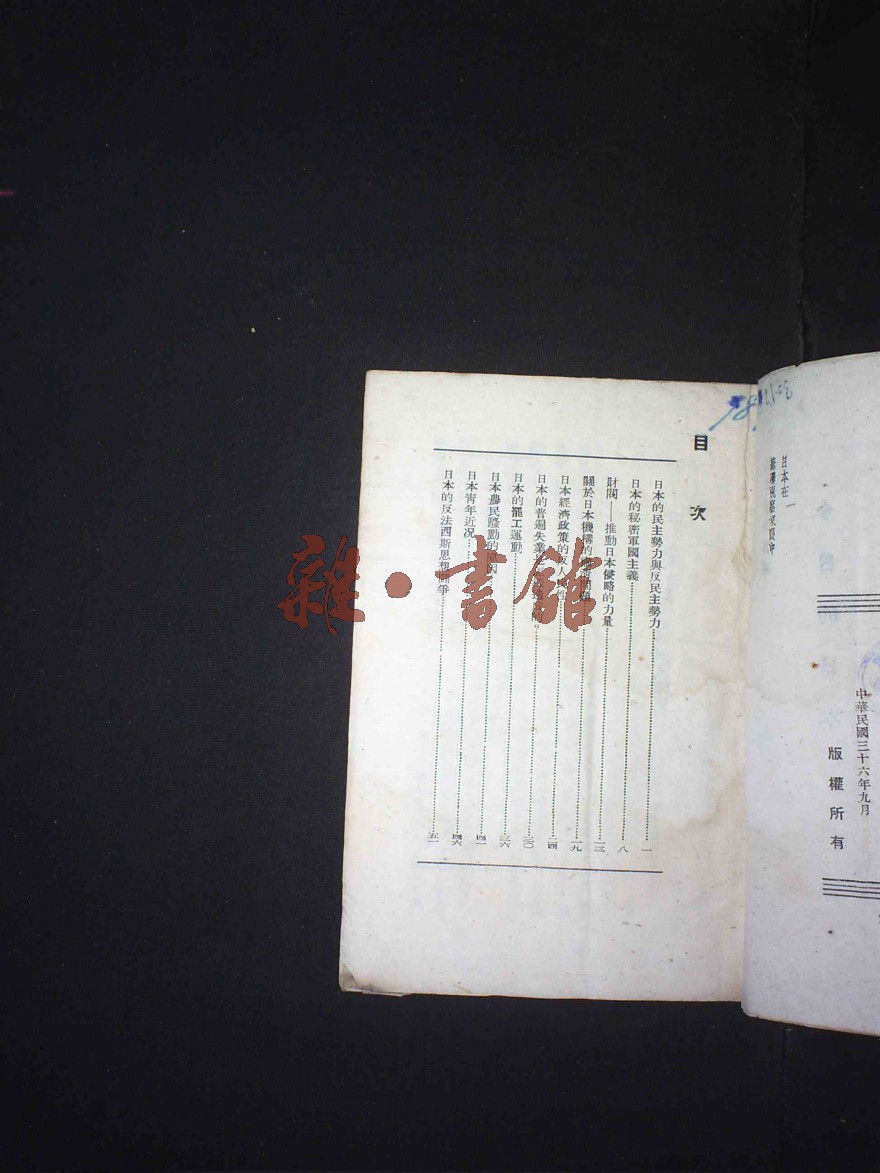 日本在一
中華民國三十六年九月
版權所有
目次
日本的民主勢力與反民主勢力……一
日本的秘密軍國主義……八
財閥——推動日本侵略的力量……一三
關於日本機構的……一九
日本經濟政策的反人……性……二四
日本的普遍失業……三〇
日本的罷工運動……三六
日本農民騷動的原因……四一
日本靑年近况……四六
日本的反法西斯思想鬥爭……五一
雜·書館